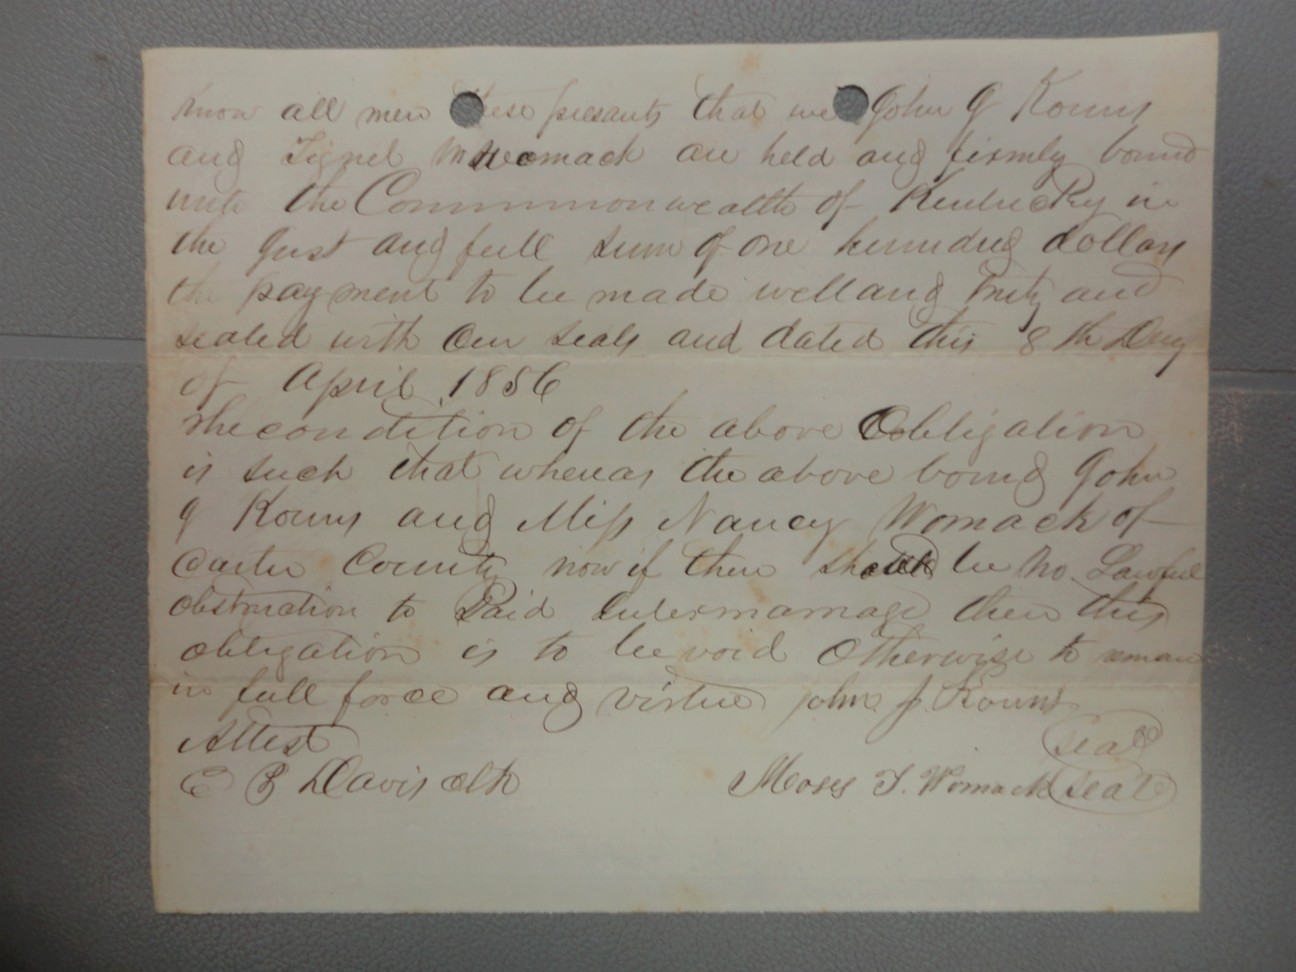 Know all men these presants that we John J Kouns
and Lignel M Womack are held and firmly bound
unto the Commonwealth of Kentucky in
the Just and full sum of one hundred dollars
the payment to be made well and truly and
sealed with our seals and dated this 8th Day
of April 1856
The condition of the above Obligation
is such that whereas the above bound John
J Kouns and Miss Nancy Womack of
Carter County now if there should be no Lawful
obstruction to Said Intermarriage then this
obligation is to be void Otherwise to remain
in full force and virtue John J. Kouns
Attest seal
C B Davis clk Moses T. Womack seal